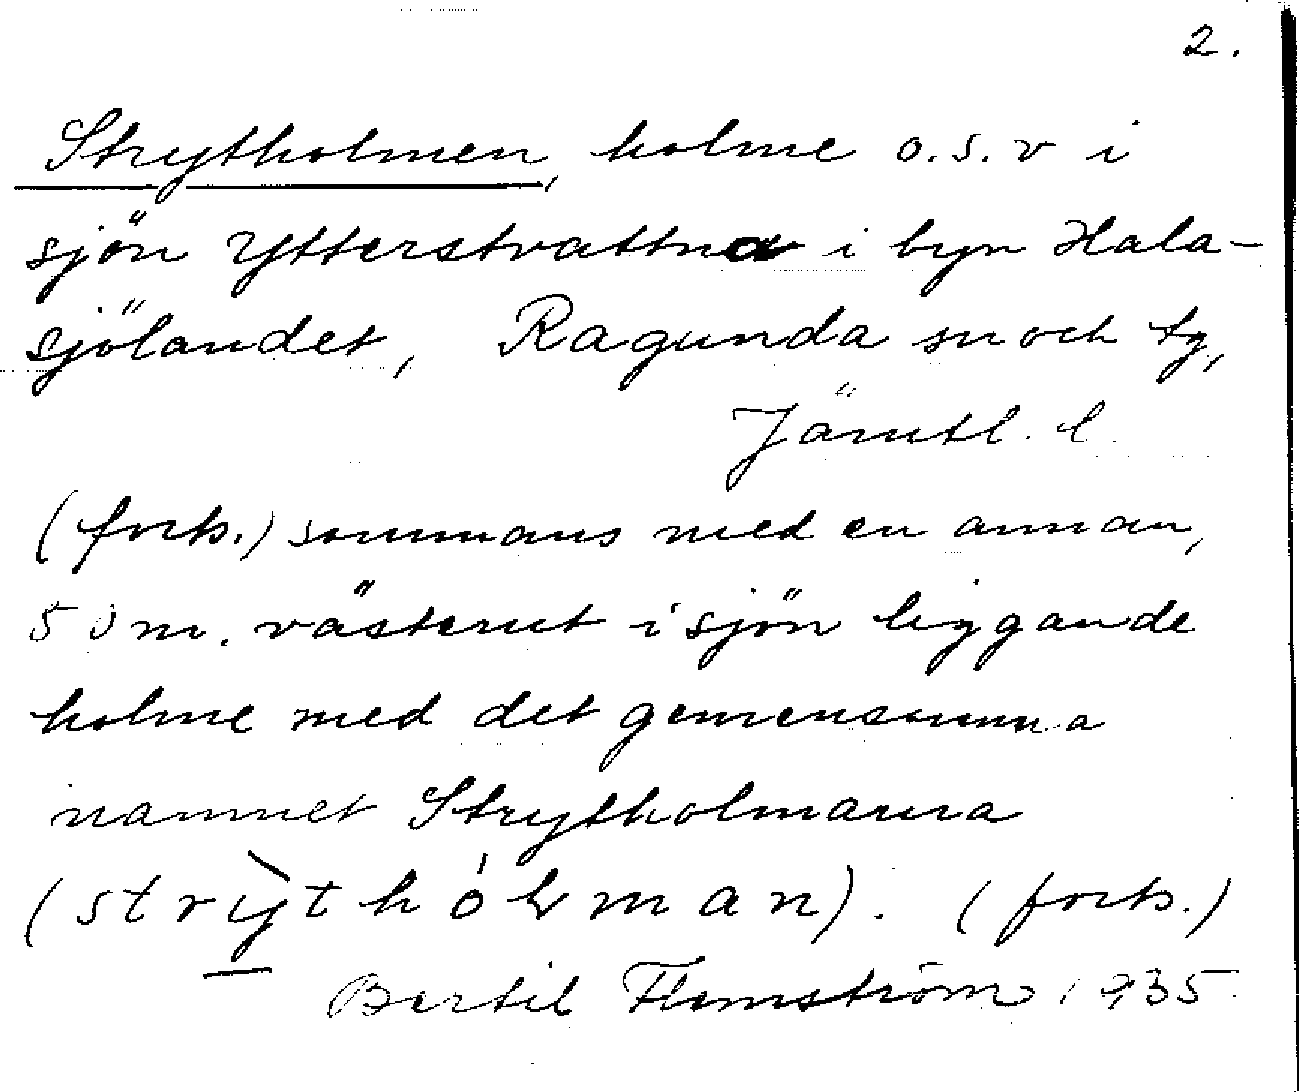 2.
Strytholmen, holme o.s.v i
sjön Ytterstvattna i byn Hala-
sjölandet, Ragunda sn och tg,
Jämtl. l.
(forts.) sommans med en annan,
50 m. västerut i sjön liggande
holme med det gemensamma
namnet Strytholmarna
(strỳthólman). (forts.)
Bertil Flemström 1935.